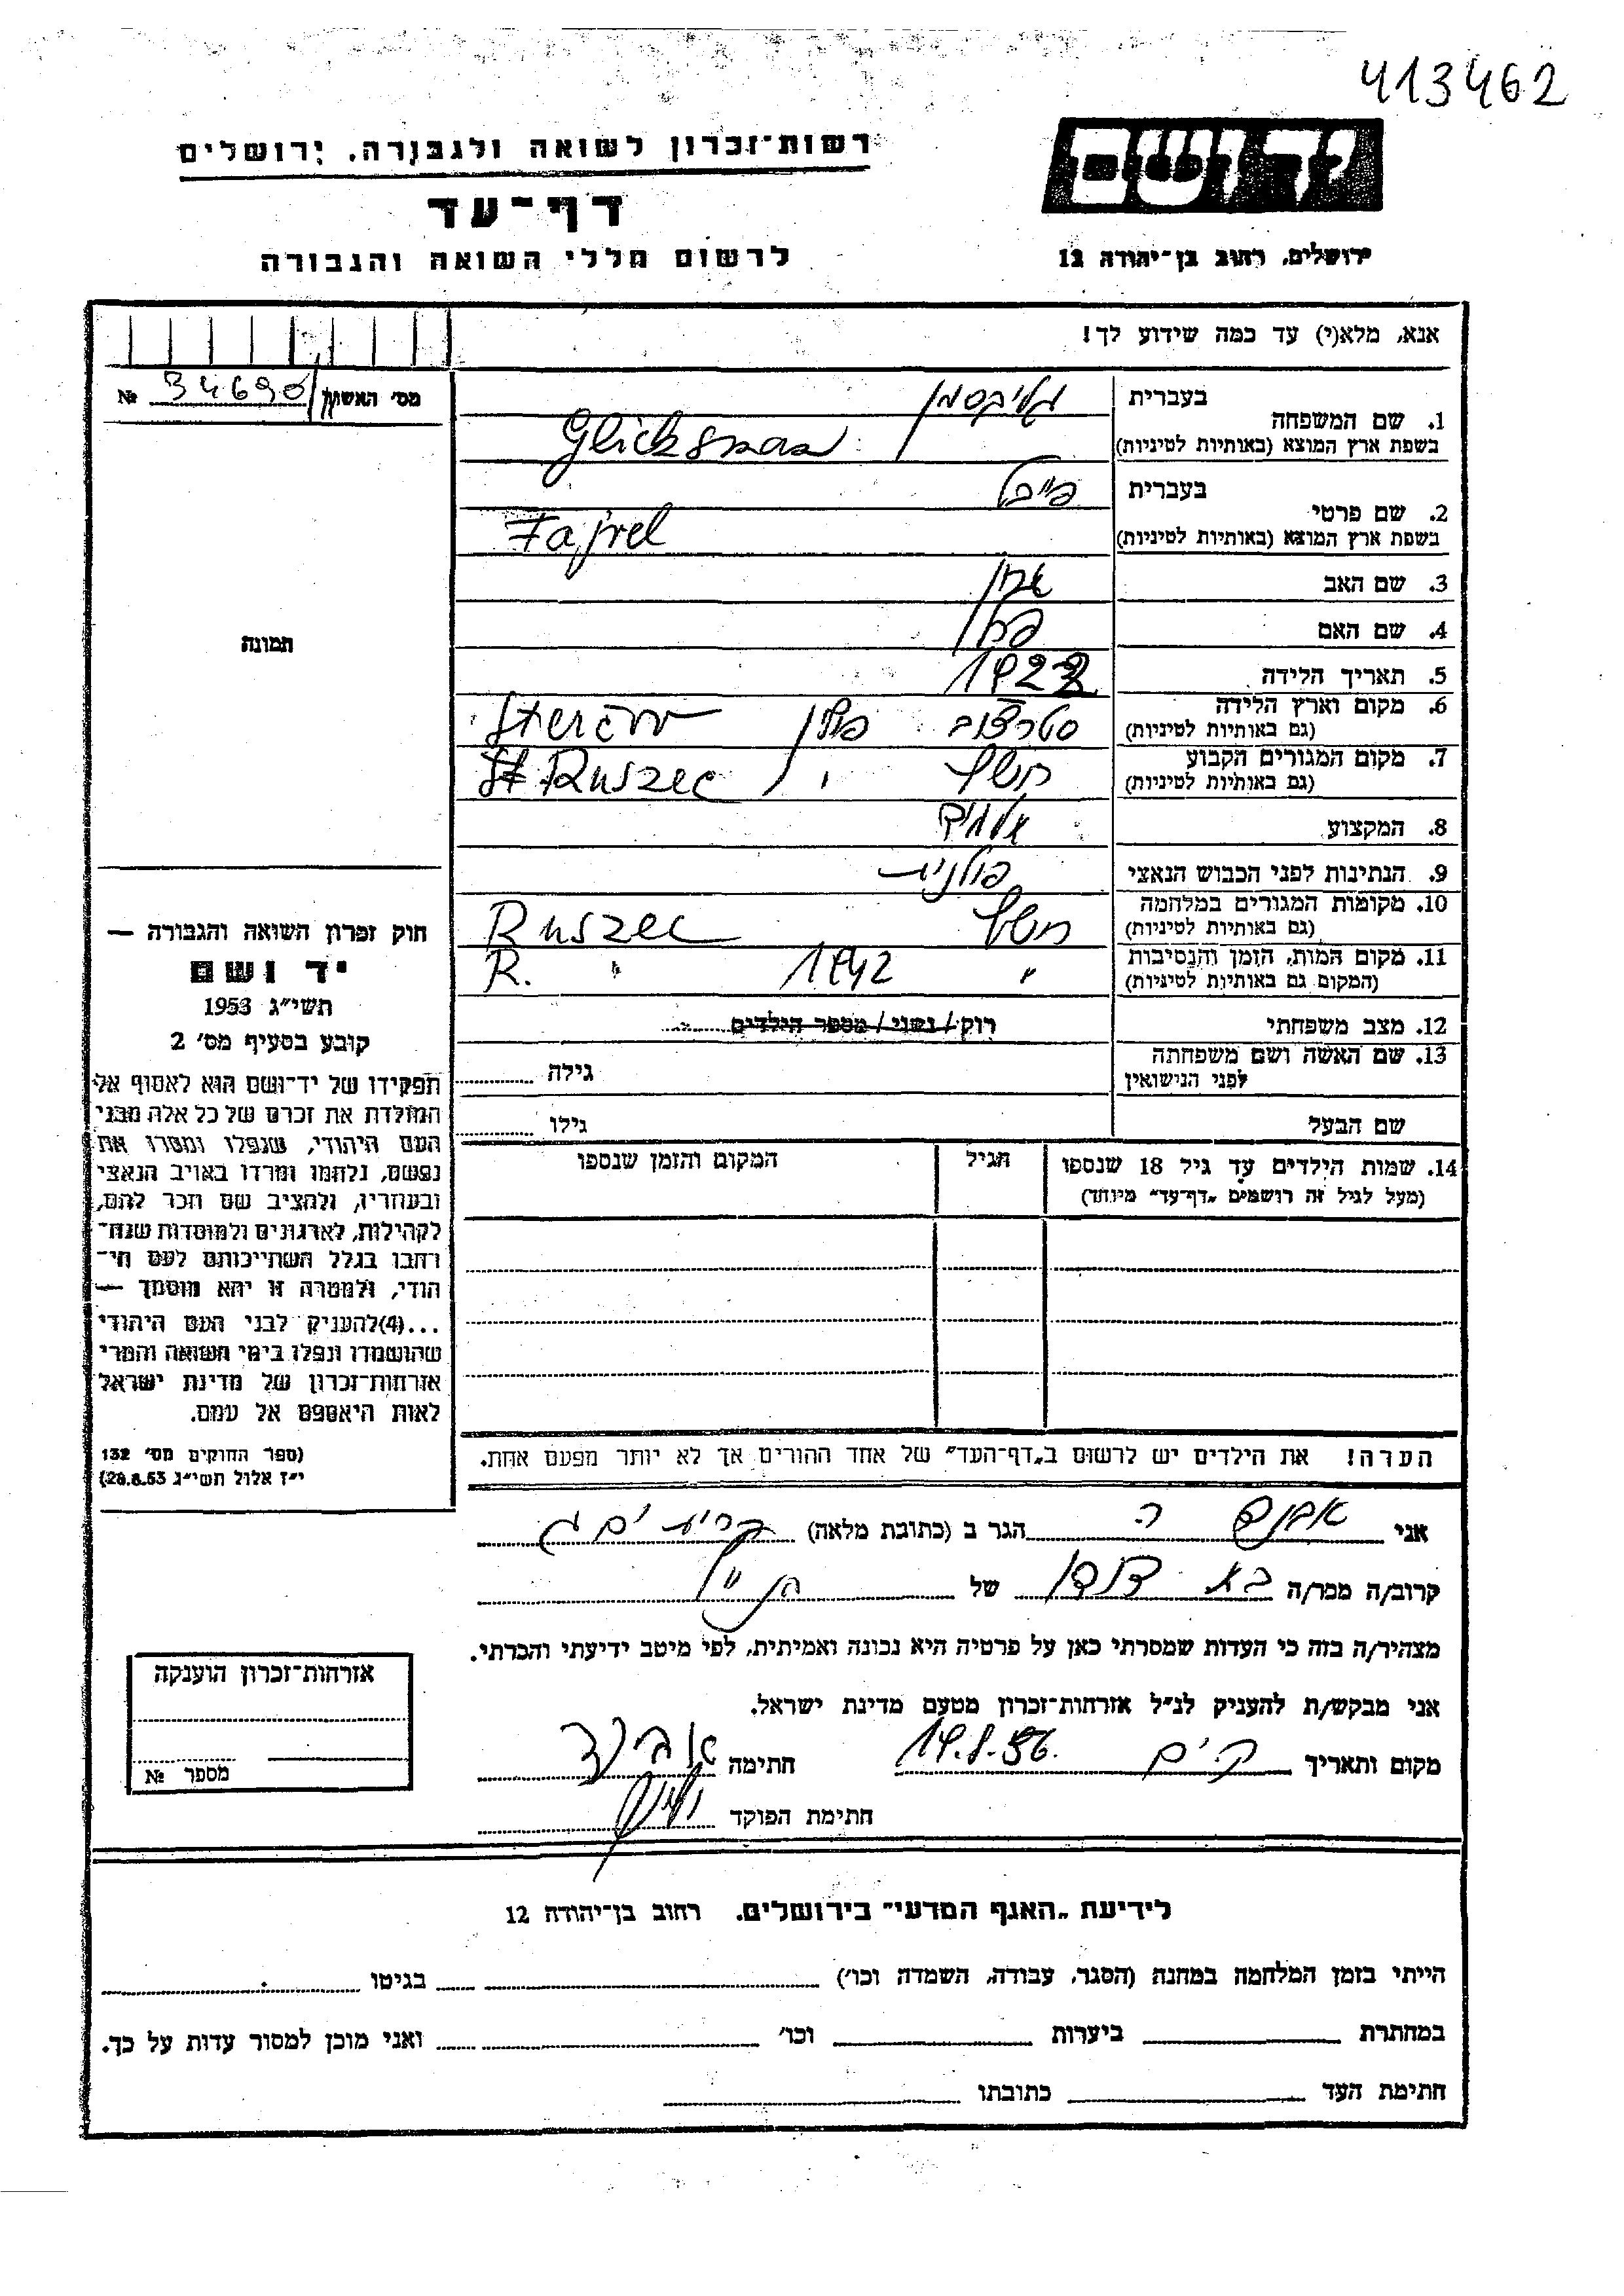 413462
יד ושם
רשות־זכרון לשואה ולגבורה, ירושלים
דף־עד
לרשום חללי השואה והגבורה
ירושלים, רחוב בן־יהודה 12
אנא, מלא(י) עד כמה שידוע לך!
מס' האשון № 34690
1. שם המשפחה
בעברית גליקסמן
בשפת ארץ המוצא (באותיות לטיניות) Glicksman
2. שם פרטי
בעברית פייבל
בשפת ארץ המוצא (באותיות לטיניות) Fajvel
3. שם האב
4. שם האם
5. תאריך הלידה
6. מקום וארץ הלידה
(גם באותיות לטיניות) פולין
7. מקום המגורים הקבוע
(גם באותיות לטיניות) Ruszec
8. המקצוע
9. הנתינות לפני הכבוש הנאצי פולנית
10. מקומות המגורים במלחמה
(גם באותיות לטיניות) Ruszec
11. מקום המות, הזמן והנסיבות
(המקום גם באותיות לטיניות) " 1942 R. "
12. מצב משפחתי רוק / נשוי / מספר הילדים
13. שם האשה ושם משפחתה
לפני הנישואין גילה
שם הבעל גילו
14. שמות הילדים עד גיל 18 שנספו
(מעל לגיל זה רושמים „דף־עד" מיוחד)
הגיל
המקום והזמן שנספו
הערה! את הילדים יש לרשום ב„דף־העד" של אחד ההורים אך לא יותר מפעם אחת.
תמונה
חוק זכרון השואה והגבורה —
יד ושם
תשי"ג 1953
קובע בסעיף מס' 2
תפקידו של יד־ושם הוא לאסוף אל
המולדת את זכרם של כל אלה מבני
העם היהודי, שנפלו ומסרו את
נפשם, נלחמו ומרדו באויב הנאצי
ובעוזריו, ולהציב שם וזכר להם,
לקהילות, לארגונים ולמוסדות שנח־
רבו בגלל השתייכותם לעם הי־
הודי, ולמטרה זו יהא מוסמך —
...(4)להעניק לבני העם היהודי
שהושמדו ונפלו בימי השואה והמרי
אזרחות־זכרון של מדינת ישראל
לאות היאספם אל עמם.
(ספר החוקים מס' 132
י"ז אלול תשי"ג 28.8.53)
אני הגר ב (כתובת מלאה) קרית ים ג
קרוב/ה מכר/ה של
מצהיר/ה בזה כי העדות שמסרתי כאן על פרטיה היא נכונה ואמיתית, לפי מיטב ידיעתי והכרתי.
אני מבקש/ת להעניק לנ"ל אזרחות־זכרון מטעם מדינת ישראל.
מקום ותאריך ק. ים חתימה
חתימת הפוקד
אזרחות־זכרון הוענקה
מספר №
לידיעת „האגף המדעי" בירושלים, רחוב בן־יהודה 12
הייתי בזמן המלחמה במחנה (הסגר, עבודה, השמדה וכו') בגיטו
במחתרת ביערות וכו' ואני מוכן למסור עדות על כך.
חתימת העד כתובתו